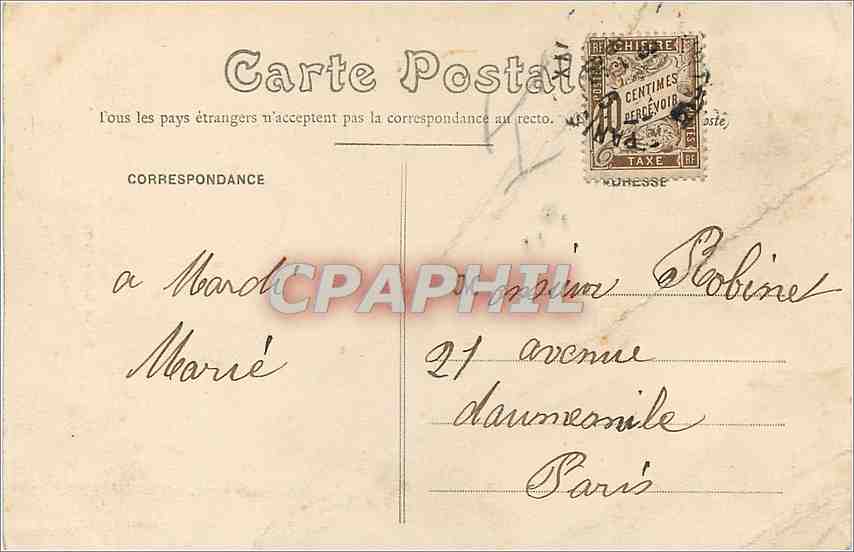 Carte Postale
Tous les pays étrangers n'acceptent pas la correspondance au recto. oste)
CORRESPONDANCE
ADRESSE
RF CHIFFRE
10 CENTIMES
A PERCEVOIR
POSTES
TAXE RF
CPAPHIL
a Mardi
Marié
Monsieur Robinet
21 avenue
daumesnile
Paris